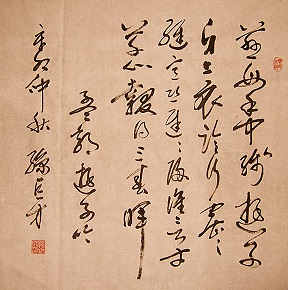 慈母手中線遊子
身上衣臨行密密
縫意恐遲遲歸誰言寸
草心報得三春暉
孟郊遊子吟
仲秋孫